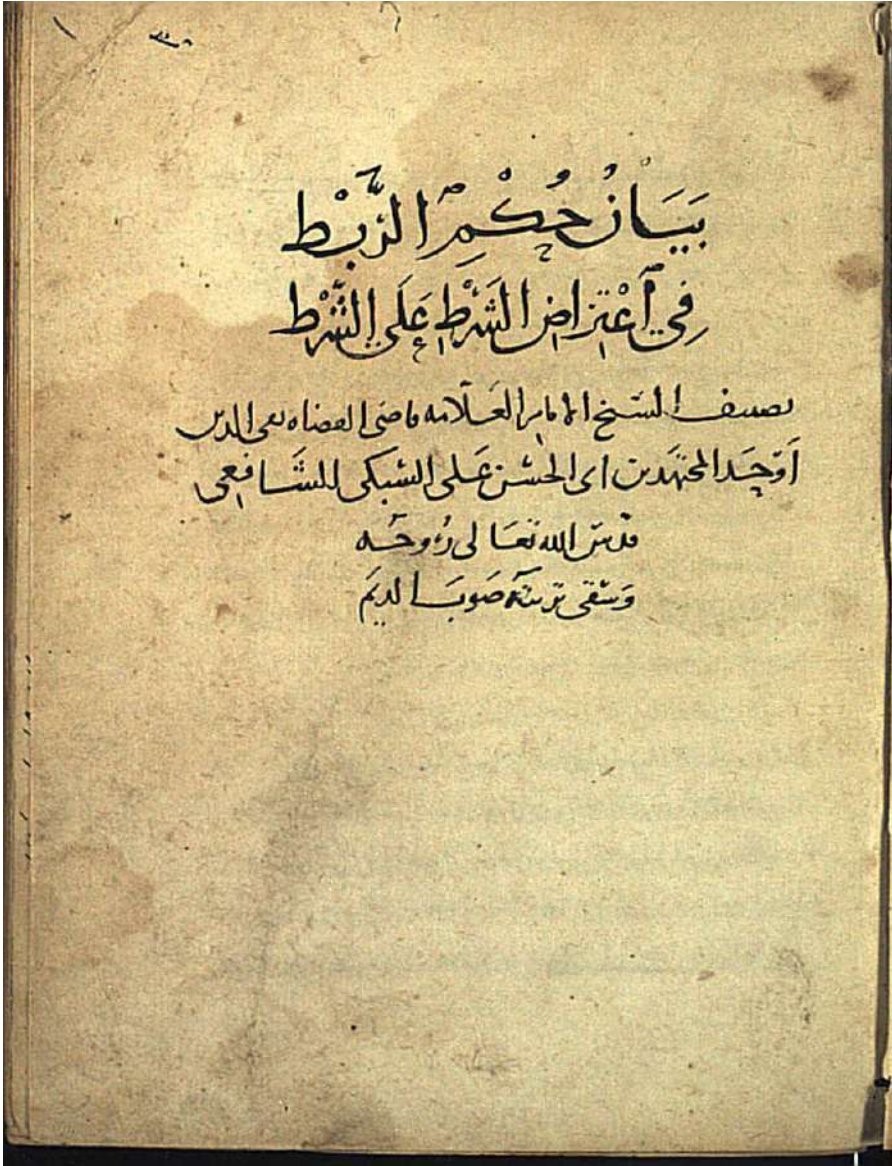 بَيَانُ حُكْمِ الرَّبْط
فِي اَعْتِرَاضِ الشَّرْطِ عَلَى الشَّرْط
تصنيف الشيخ الامام العلامه قاضى القضاه تقى الدين
اَوْحَد المجتهدين ابى الحسن عَلى السُبكى الشَافعى
قدس الله تعَالى رُوحَه
وَسَقى تربته صَوبَ الديَم